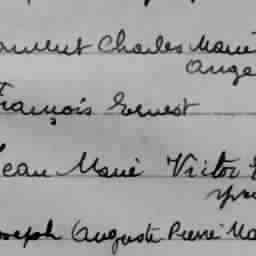 Laurent Charles Marie
Ange
François Ernest
Jean Marie Victor
Joseph Auguste Pierre Ma